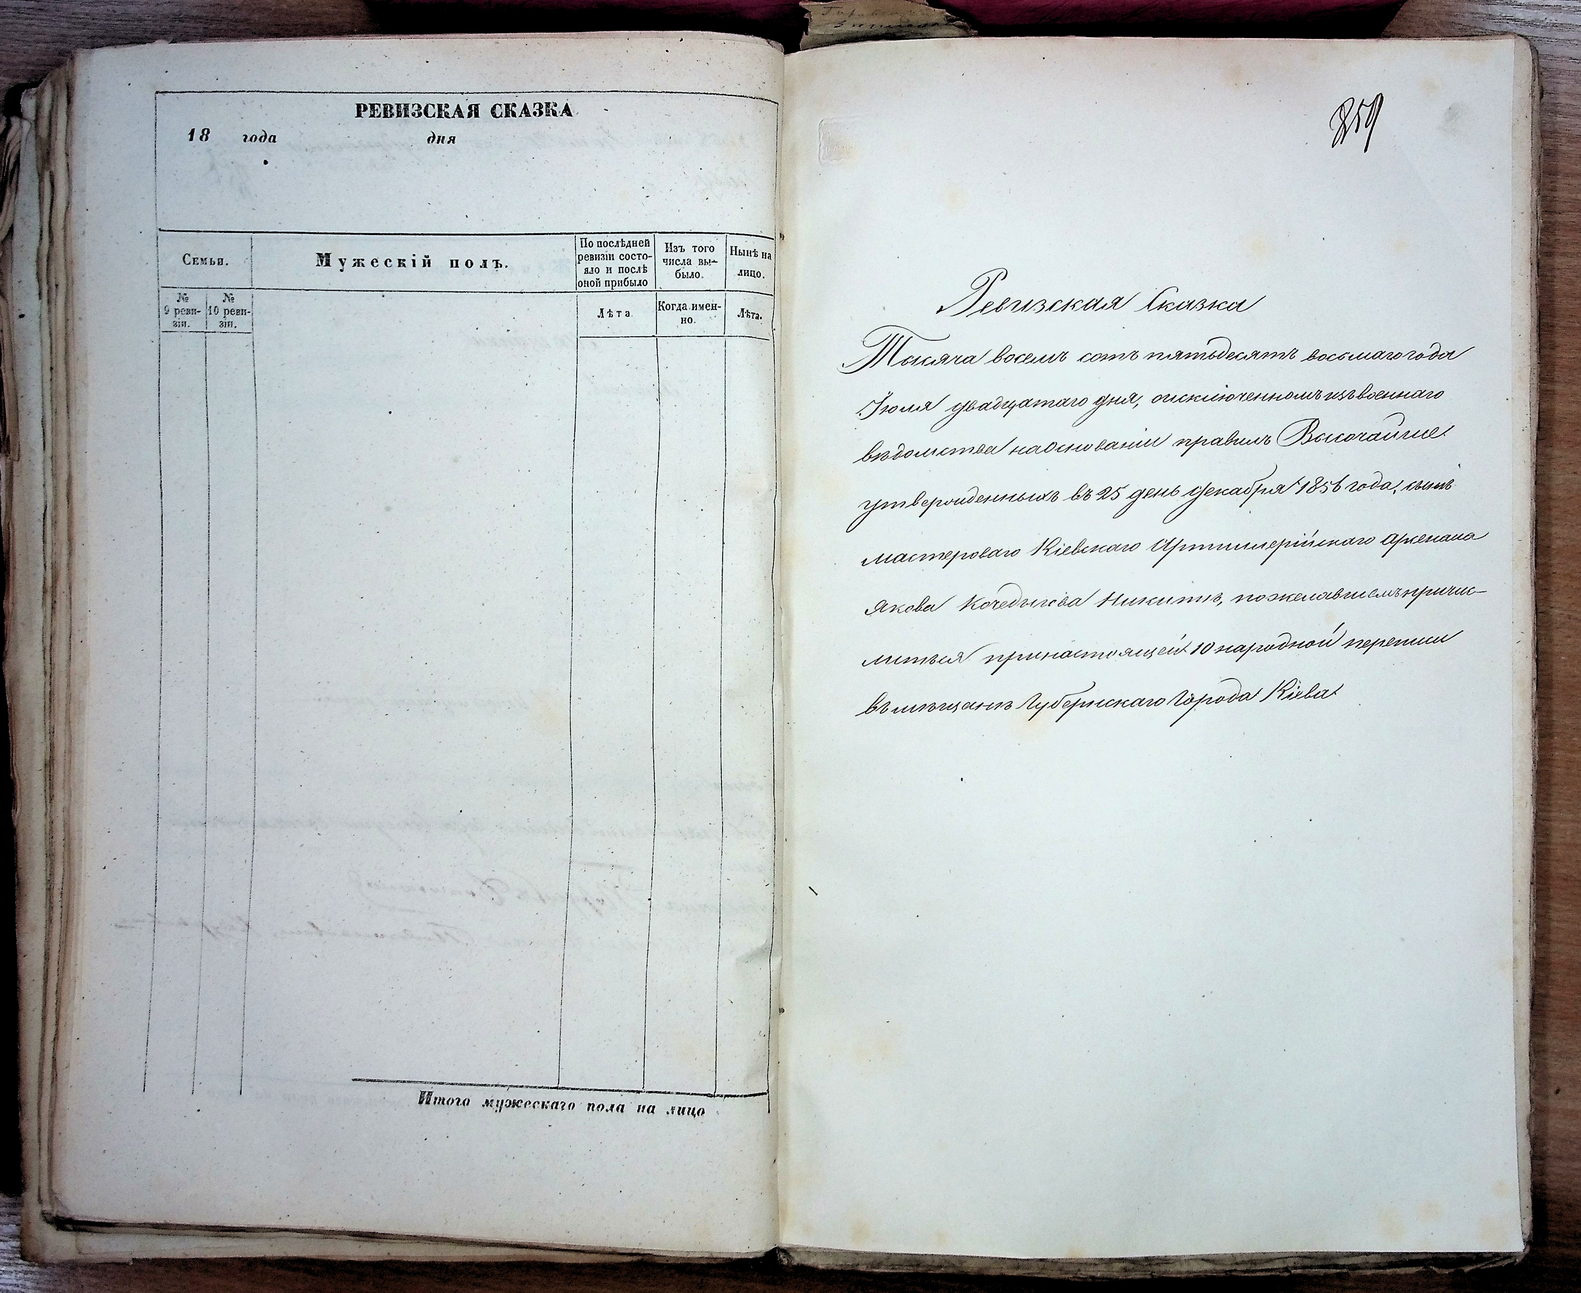 РЕВИЗСКАЯ СКАЗКА
18 года дня
Семьи.
Мужескій полъ.
По послѣдней
ревизіи состо-
яло и послѣ
оной прибыло
Изъ того
числа вы-
было.
Нынѣ на
лицо.
№
9 реви-
зіи.
№
10 реви-
зіи.
Лѣта
Когда имен-
но.
Лѣта.
Итого мужескаго пола на лицо
859
Ревизская Сказка
Тысяча восемь сотъ пятьдесятъ восьмаго года
Іюля двадцатаго дня, о исключенномъ изъ военнаго
вѣдомства на основаніи правилъ Высочайше
утвержденныхъ въ 25 день декабря 1856 года, сынѣ
мастероваго Кіевскаго Артиллерійскаго Арсенала
Якова Кочедыкова Никитѣ, пожелавшемъ причис-
литься при настоящей 10 народной переписи
въ мѣщане Губернскаго Города Кіева